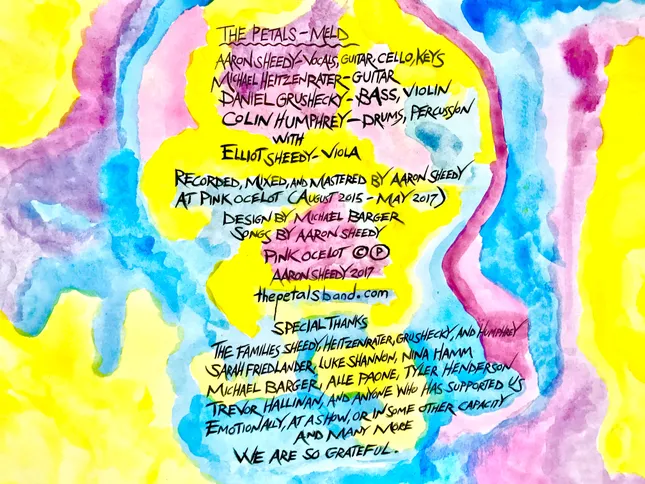 THE PETALS-MELD
AARON SHEEDY-VOCALS, GUITAR, CELLO, KEYS
MICHAEL HEITZENRATER-GUITAR
DANIEL GRUSHECKY-BASS, VIOLIN
COLIN HUMPHREY-DRUMS, PERCUSSION
WITH
ELLIOT SHEEDY-VIOLA
RECORDED, MIXED, AND MASTERED BY AARON SHEEDY
AT PINK OCELOT (AUGUST 2015 - MAY 2017)
DESIGN BY MICHAEL BARGER
SONGS BY AARON SHEEDY
PINK OCELOT © ℗
AARON SHEEDY 2017
thepetalsband.com
SPECIAL THANKS
THE FAMILIES SHEEDY, HEITZENRATER, GRUSHECKY, AND HUMPHREY
SARAH FRIEDLANDER, LUKE SHANNON, NINA HAMM
MICHAEL BARGER, ALLE PAONE, TYLER HENDERSON
TREVOR HALLINAN, AND ANYONE WHO HAS SUPPORTED US
EMOTIONALLY, AT A SHOW, OR IN SOME OTHER CAPACITY
AND MANY MORE
WE ARE SO GRATEFUL.